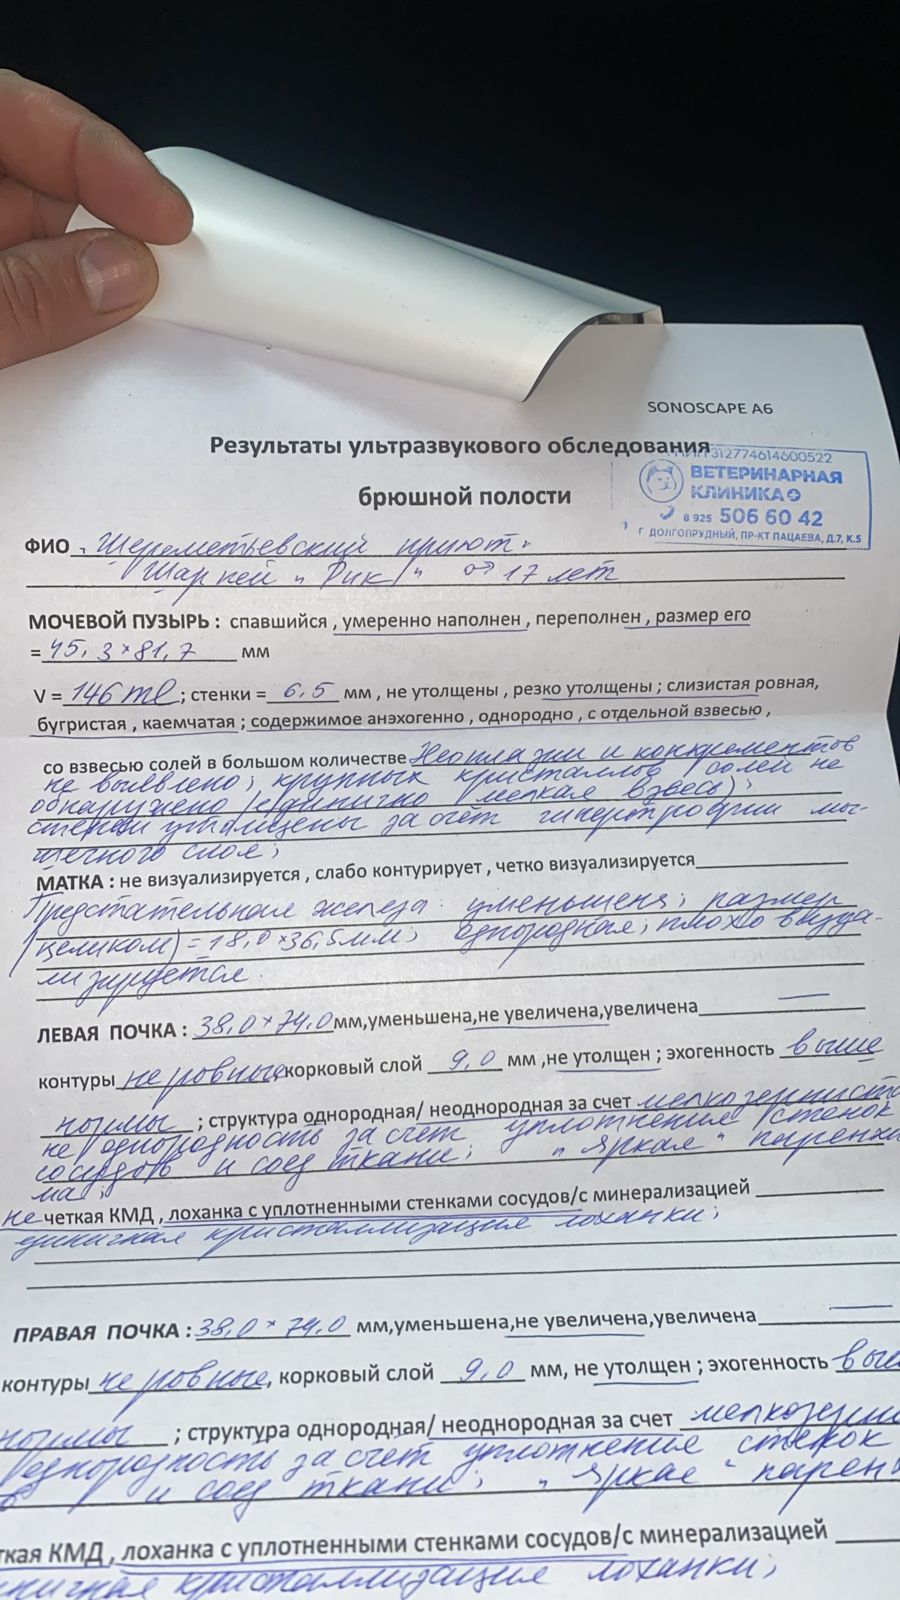 SONOSCAPE A6
Результаты ультразвукового обследования
брюшной полости
312774614600522
ВЕТЕРИНАРНАЯ
КЛИНИКА
8 925 506 60 42
Г ДОЛГОПРУДНЫЙ, ПР-КТ ПАЦАЕВА, Д.7, К.5
ФИО "Шереметьевский приют"
Шарпей "Рик" 17 лет
МОЧЕВОЙ ПУЗЫРЬ : спавшийся , умеренно наполнен , переполнен , размер его
= 45,3 × 81,7 мм
V = 146 ml ; стенки = 6,5 мм , не утолщены , резко утолщены ; слизистая ровная,
бугристая , каемчатая ; содержимое анэхогенно , однородно , с отдельной взвесью ,
со взвесью солей в большом количестве Неоплазии и конкрементов
не выявлено; крупных кристаллов солей не
обнаружено (единично мелкая взвесь);
стенки утолщены за счёт гипертрофии мы-
шечного слоя;
МАТКА : не визуализируется , слабо контурирует , четко визуализируется
Предстательная железа: уменьшена; размер
(целиком) = 18,0 × 36,5 мм; однородная; плохо визуа-
лизируется.
ЛЕВАЯ ПОЧКА : 38,0 × 74,0 мм,уменьшена,не увеличена,увеличена
контуры не ровные,корковый слой 9,0 мм ,не утолщен ; эхогенность выше
нормы ; структура однородная/ неоднородная за счет мелкозернист
не однородность за счет уплотнения стенок
сосудов и соед ткани; "яркая" паренхи
ма;
не четкая КМД , лоханка с уплотненными стенками сосудов/с минерализацией
единичная кристаллизация лоханки;
ПРАВАЯ ПОЧКА : 38,0 × 74,0 мм,уменьшена,не увеличена,увеличена
контуры не ровные, корковый слой 9,0 мм, не утолщен ; эхогенность выш
нормы ; структура однородная/ неоднородная за счет мелкозерни
однородность за счет уплотнения стенок
и соед ткани; "яркая" парен
ткая КМД , лоханка с уплотненными стенками сосудов/с минерализацией
иничная кристаллизация лоханки;